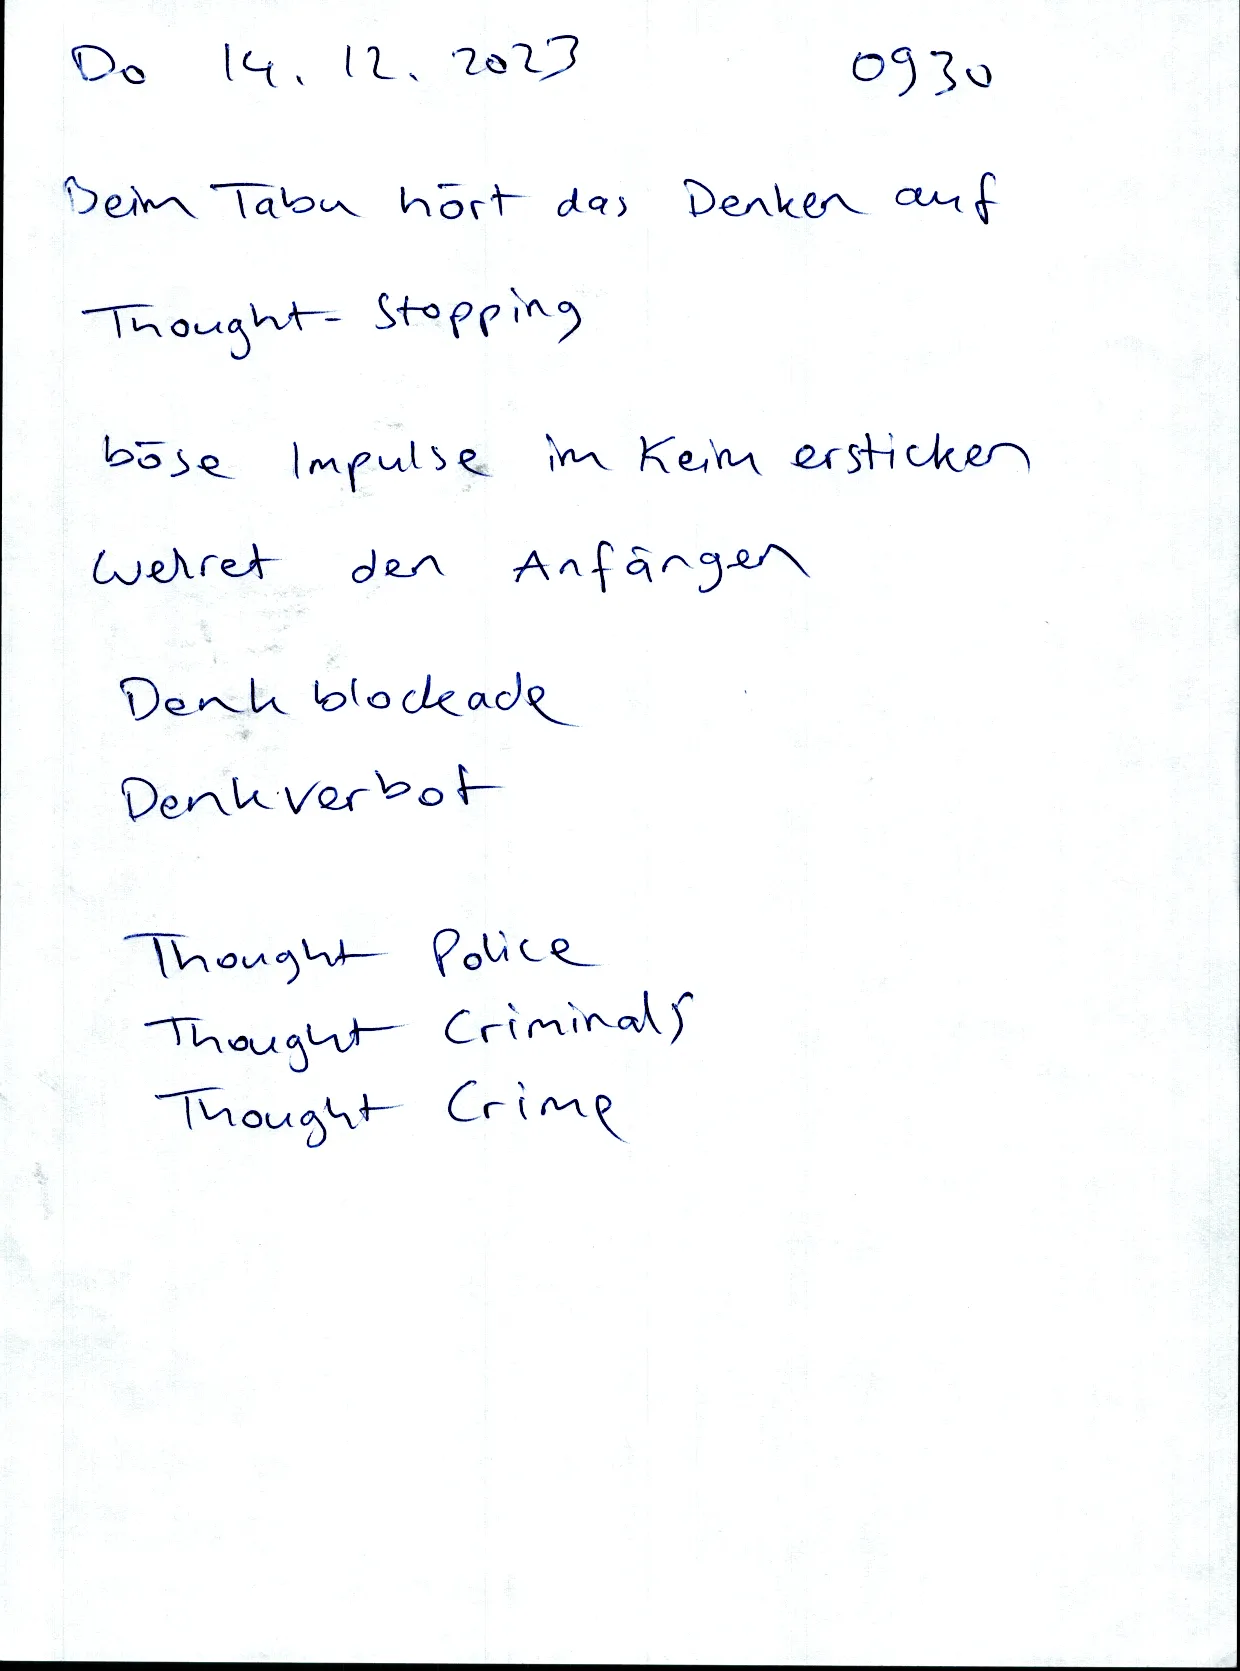 Do 14. 12. 2023 0930
Beim Tabu hört das Denken auf
Thought-Stopping
böse Impulse im Keim ersticken
wehret den Anfängen
Denkblockade
Denkverbot
Thought Police
Thought Criminals
Thought Crime